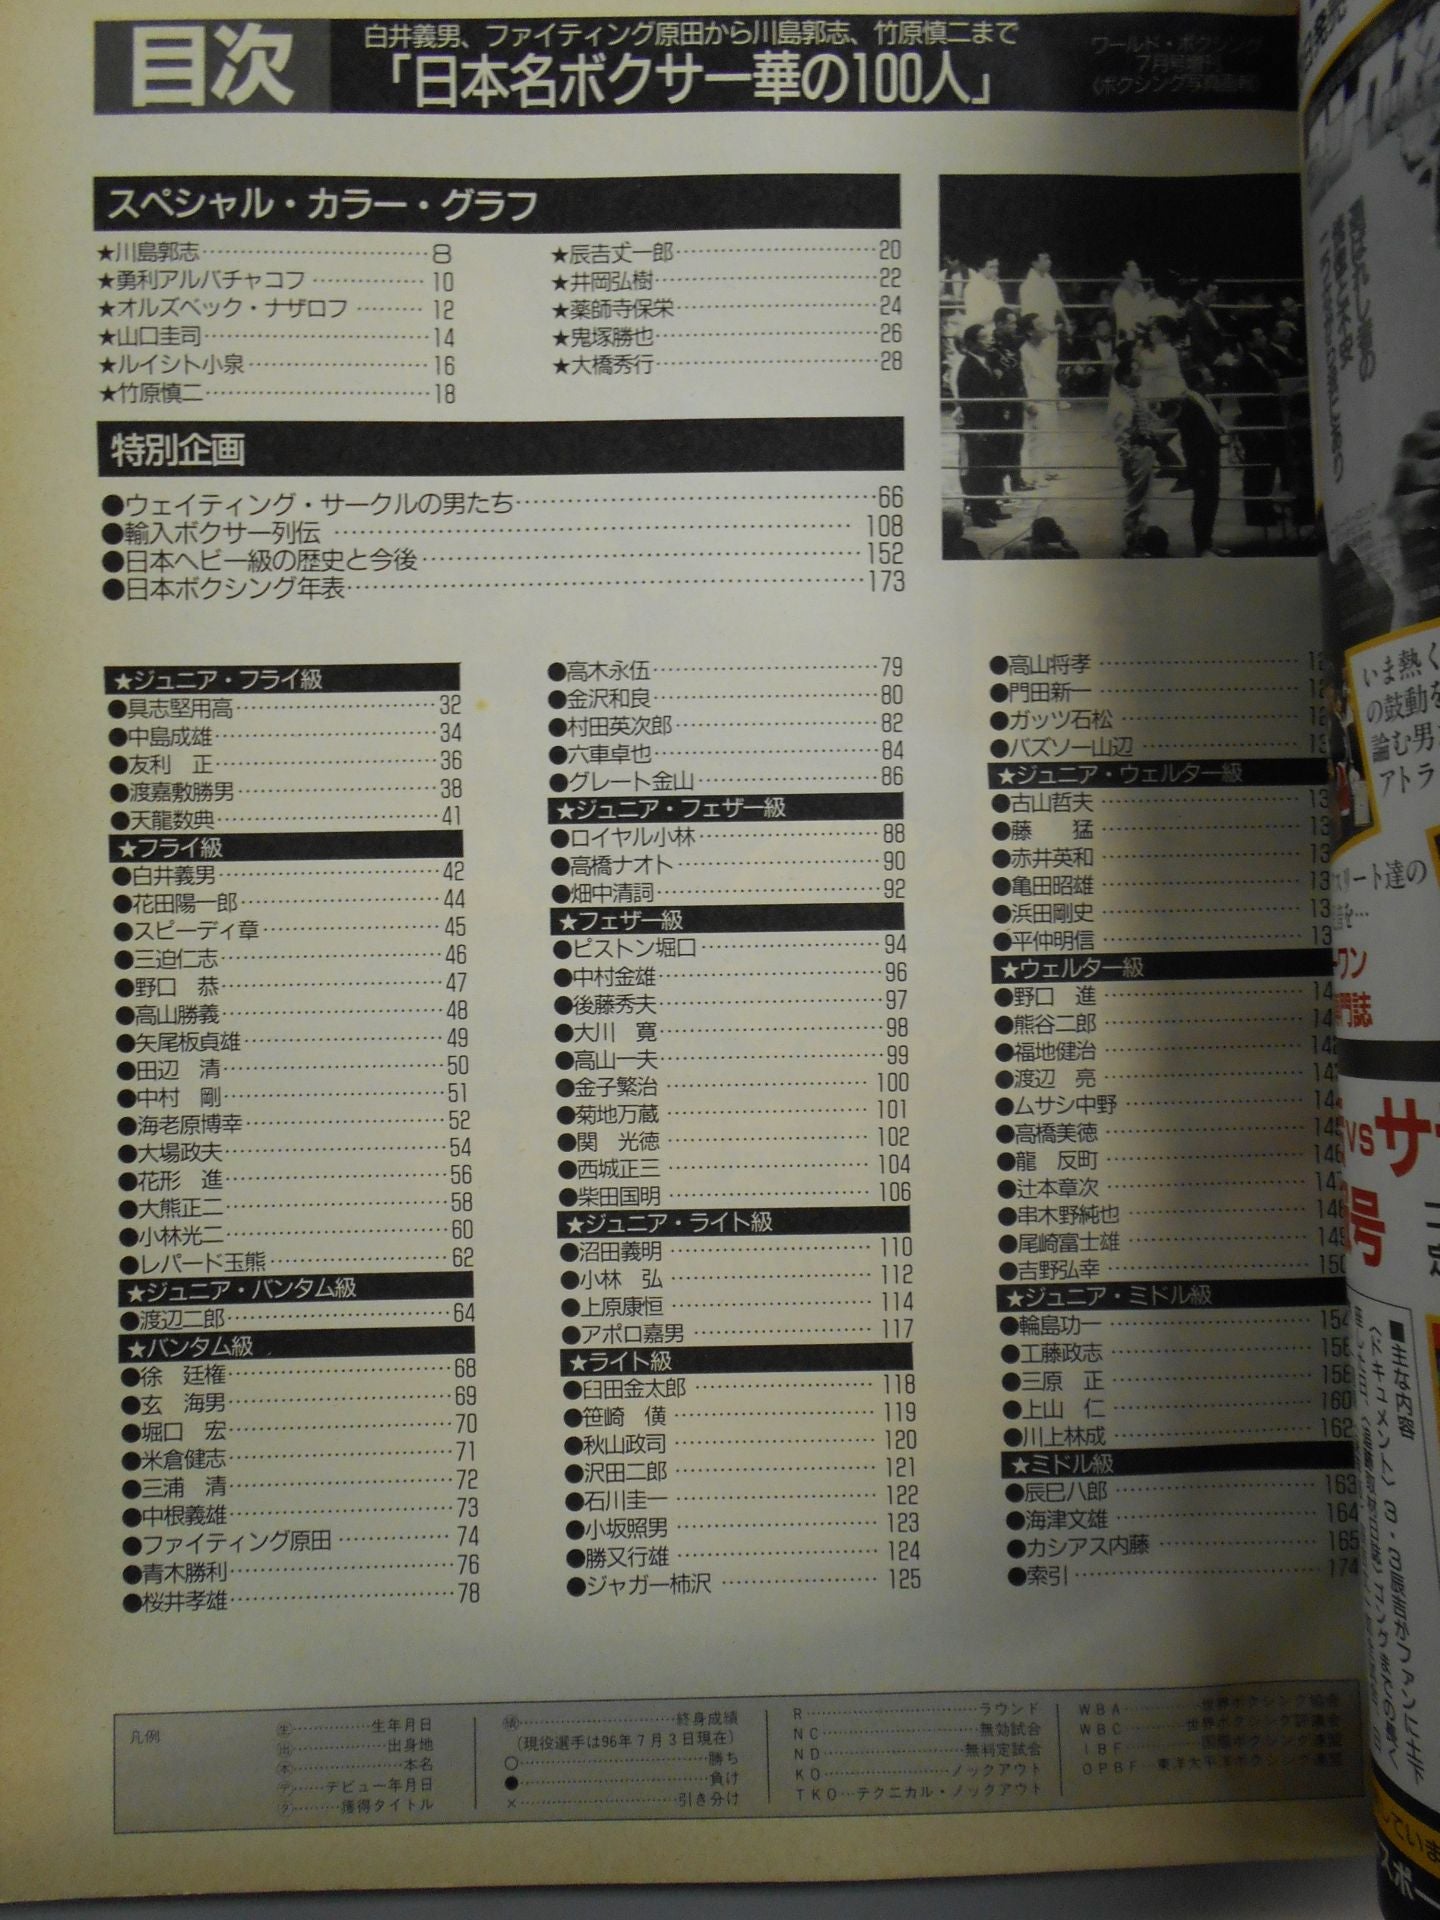 目次
白井義男、ファイティング原田から川島郭志、竹原慎二まで
「日本名ボクサー華の100人」
ワールド・ボクシング
7月号増刊
スペシャル・カラー・グラフ
★川島郭志 8
★勇利アルバチャコフ 10
★オルズベック・ナザロフ 12
★山口圭司 14
★ルイシト小泉 16
★竹原慎二 18
★辰吉丈一郎 20
★井岡弘樹 22
★薬師寺保栄 24
★鬼塚勝也 26
★大橋秀行 28
特別企画
●ウェイティング・サークルの男たち 66
●輸入ボクサー列伝 108
●日本ヘビー級の歴史と今後 152
●日本ボクシング年表 173
★ジュニア・フライ級
●具志堅用高 32
●中島成雄 34
●友利 正 36
●渡嘉敷勝男 38
●天龍数典 41
★フライ級
●白井義男 42
●花田陽一郎 44
●スピーディ章 45
●三迫仁志 46
●野口 恭 47
●高山勝義 48
●矢尾板貞雄 49
●田辺 清 50
●中村 剛 51
●海老原博幸 52
●大場政夫 54
●花形 進 56
●大熊正二 58
●小林光二 60
●レパード玉熊 62
★ジュニア・バンタム級
●渡辺二郎 64
★バンタム級
●徐 廷権 68
●玄 海男 69
●堀口 宏 70
●米倉健志 71
●三浦 清 72
●中根義雄 73
●ファイティング原田 74
●青木勝利 76
●桜井孝雄 78
●高木永伍 79
●金沢和良 80
●村田英次郎 82
●六車卓也 84
●グレート金山 86
★ジュニア・フェザー級
●ロイヤル小林 88
●高橋ナオト 90
●畑中清詞 92
★フェザー級
●ピストン堀口 94
●中村金雄 96
●後藤秀夫 97
●大川 寛 98
●高山一夫 99
●金子繁治 100
●菊地万蔵 101
●関 光徳 102
●西城正三 104
●柴田国明 106
★ジュニア・ライト級
●沼田義明 110
●小林 弘 112
●上原康恒 114
●アポロ嘉男 117
★ライト級
●臼田金太郎 118
●笹崎 僙 119
●秋山政司 120
●沢田二郎 121
●石川圭一 122
●小坂照男 123
●勝又行雄 124
●ジャガー柿沢 125
●高山将孝 12
●門田新一 12
●ガッツ石松 12
●バズソー山辺 13
★ジュニア・ウェルター級
●古山哲夫 13
●藤 猛 13
●赤井英和 13
●亀田昭雄 13
●浜田剛史 13
●平仲明信 13
★ウェルター級
●野口 進 14
●熊谷二郎 14
●福地健治 142
●渡辺 亮 143
●ムサシ中野 144
●高橋美徳 145
●龍 反町 146
●辻本章次 147
●串木野純也 148
●尾崎富士雄 149
●吉野弘幸 150
★ジュニア・ミドル級
●輪島功一 154
●工藤政志 156
●三原 正 158
●上山 仁 160
●川上林成 162
★ミドル級
●辰巳八郎 163
●海津文雄 164
●カシアス内藤 165
●索引 174
凡例
㊌生年月日
出身地
本名
デビュー年月日
獲得タイトル
終身成績
(現役選手は96年7月3日現在)
○ 勝ち
● 負け
× 引き分け
R ラウンド
NC 無効試合
ND 無判定試合
KO ノックアウト
TKO テクニカル・ノックアウト
WBA 世界ボクシング協会
WBC 世界ボクシング評議会
IBF 国際ボクシング連盟
OPBF 東洋太平洋ボクシング連盟
いま熱く
の鼓動を
アトラ
リート達の
ワン
門誌
vsサ
号
■主な内容